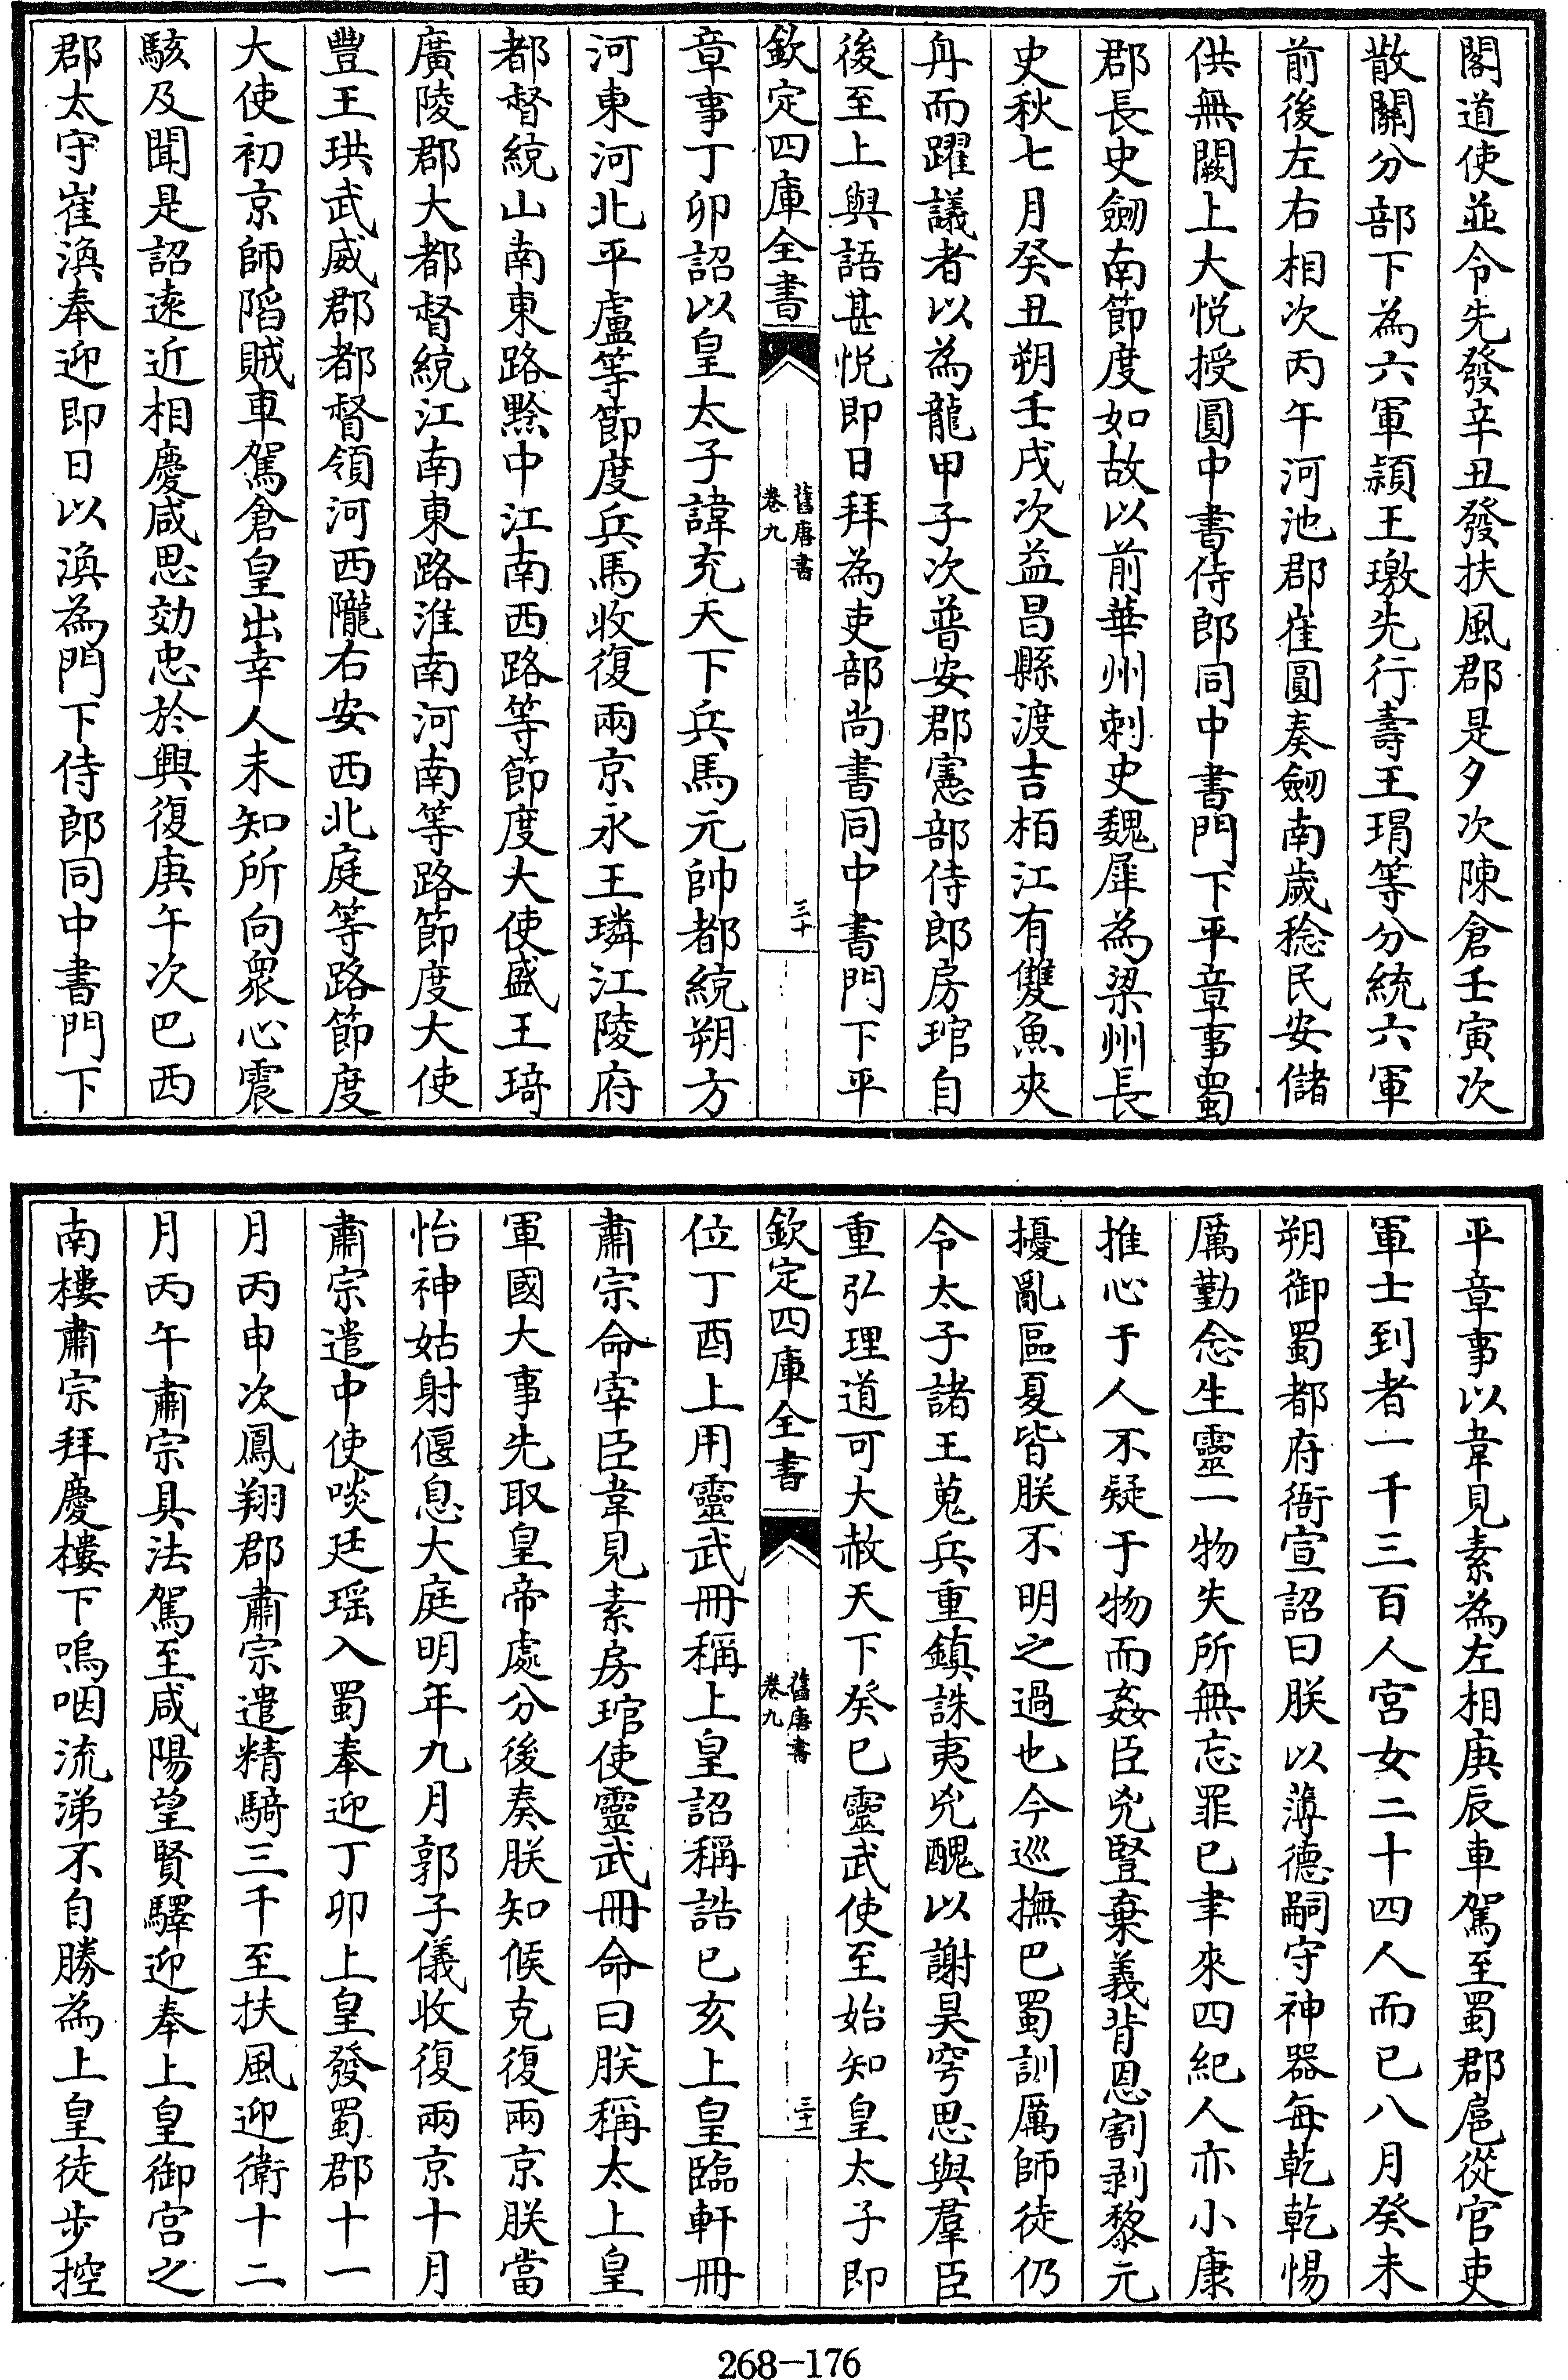 閣道使並令先發辛丑發扶風郡是夕次陳倉壬寅次
散關分部下為六軍潁王璬先行壽王瑁等分統六軍
前後左右相次丙午河池郡崔圓奏劒南歲稔民安儲
供無闕上大悅授圓中書侍郎同中書門下平章事蜀
郡長史劒南節度如故以前華州刺史魏犀為梁州長
史秋七月癸丑朔壬戌次益昌縣渡吉栢江有雙魚夾
舟而躍議者以為龍甲子次普安郡憲部侍郎房琯自
後至上與語甚悅即日拜為吏部尚書同中書門下平
欽定四庫全書
舊唐書
卷九
三十
章事丁卯詔以皇太子諱充天下兵馬元帥都統朔方
河東河北平盧等節度兵馬收復兩京永王璘江陵府
都督統山南東路黔中江南西路等節度大使盛王琦
廣陵郡大都督統江南東路淮南河南等路節度大使
豐王珙武威郡都督領河西隴右安西北庭等路節度
大使初京師陷賊車駕倉皇出幸人未知所向衆心震
駭及聞是詔遠近相慶咸思効忠於興復庚午次巴西
郡太守崔渙奉迎即日以渙為門下侍郎同中書門下
平章事以韋見素為左相庚辰車駕至蜀郡扈從官吏
軍士到者一千三百人宮女二十四人而已八月癸未
朔御蜀都府衙宣詔曰朕以薄德嗣守神器每乾乾惕
厲勤念生靈一物失所無忘罪已聿來四紀人亦小康
推心于人不疑于物而姦臣兇豎棄義背恩割剥黎元
擾亂區夏皆朕不明之過也今巡撫巴蜀訓厲師徒仍
令太子諸王蒐兵重鎮誅夷兇醜以謝昊穹思與羣臣
重弘理道可大赦天下癸巳靈武使至始知皇太子即
欽定四庫全書
舊唐書
卷九
三十一
位丁酉上用靈武冊稱上皇詔稱誥已亥上皇臨軒冊
肅宗命宰臣韋見素房琯使靈武冊命曰朕稱太上皇
軍國大事先取皇帝處分後奏朕知候克復兩京朕當
怡神姑射偃息大庭明年九月郭子儀收復兩京十月
肅宗遣中使啖廷瑶入蜀奉迎丁卯上皇發蜀郡十一
月丙申次鳳翔郡肅宗遣精騎三千至扶風迎衛十二
月丙午肅宗具法駕至咸陽望賢驛迎奉上皇御宮之
南樓肅宗拜慶樓下嗚咽流涕不自勝為上皇徒步控
268-176